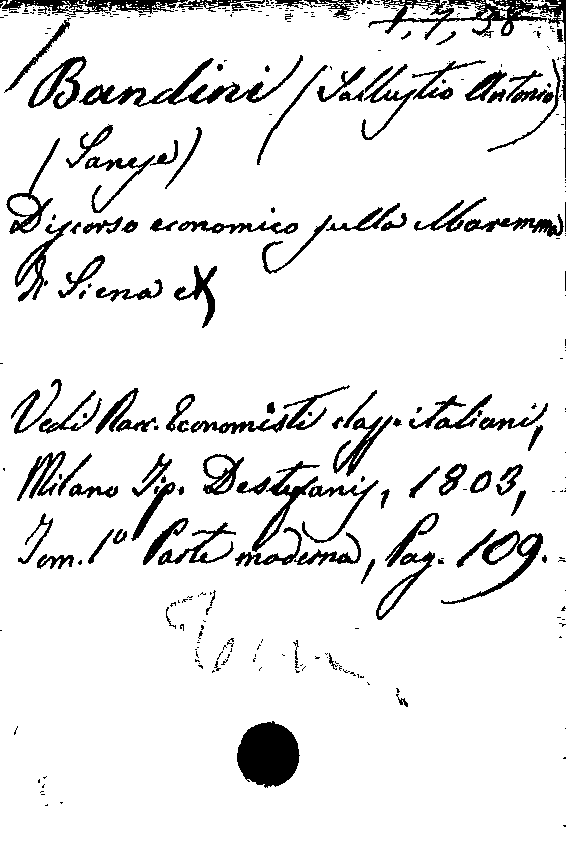 1, 7, 38
Bandini (Sallustio Antonio)
(Sanese)
Discorso economico sulla Maremma
di Siena
Vedi Racc. Economisti class. italiani,
Milano Tip. Destefanis, 1803,
Tom. 1º Parte moderna, Pag. 109.